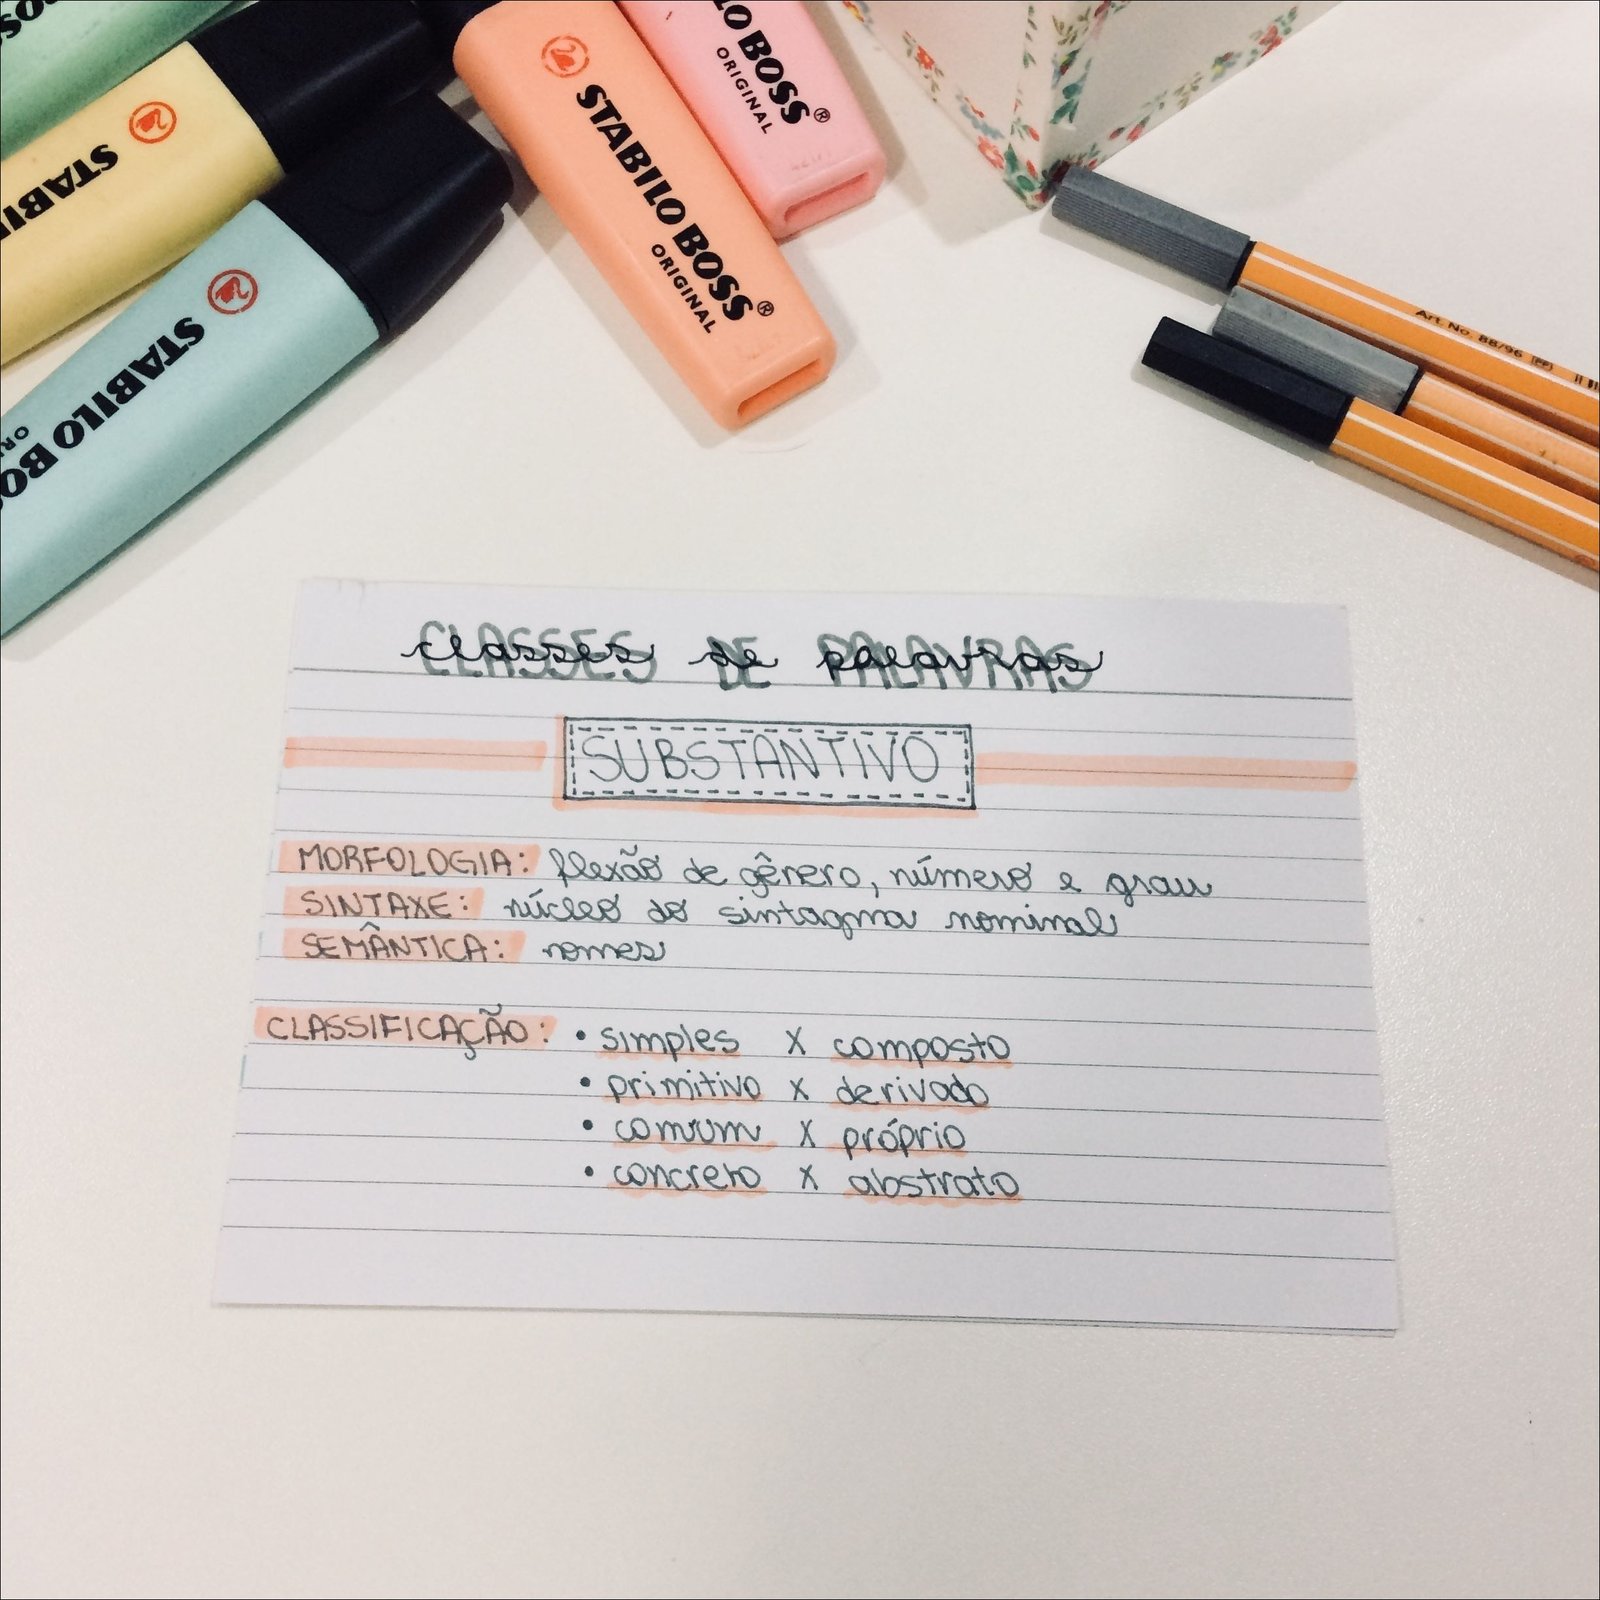 STABILO
STABILO BO
ORI
STABILO BOSS®
ORIGINAL
LO BOSS®
ORIGINAL
Art. No. 88/96
CLASSES DE PALAVRAS
classes de palavras
SUBSTANTIVO
MORFOLOGIA: flexão de gênero, número e grau
SINTAXE: núcleo do sintagma nominal
SEMÂNTICA: nomes
CLASSIFICAÇÃO: • simples X composto
• primitivo X derivado
• comum X próprio
• concreto X abstrato